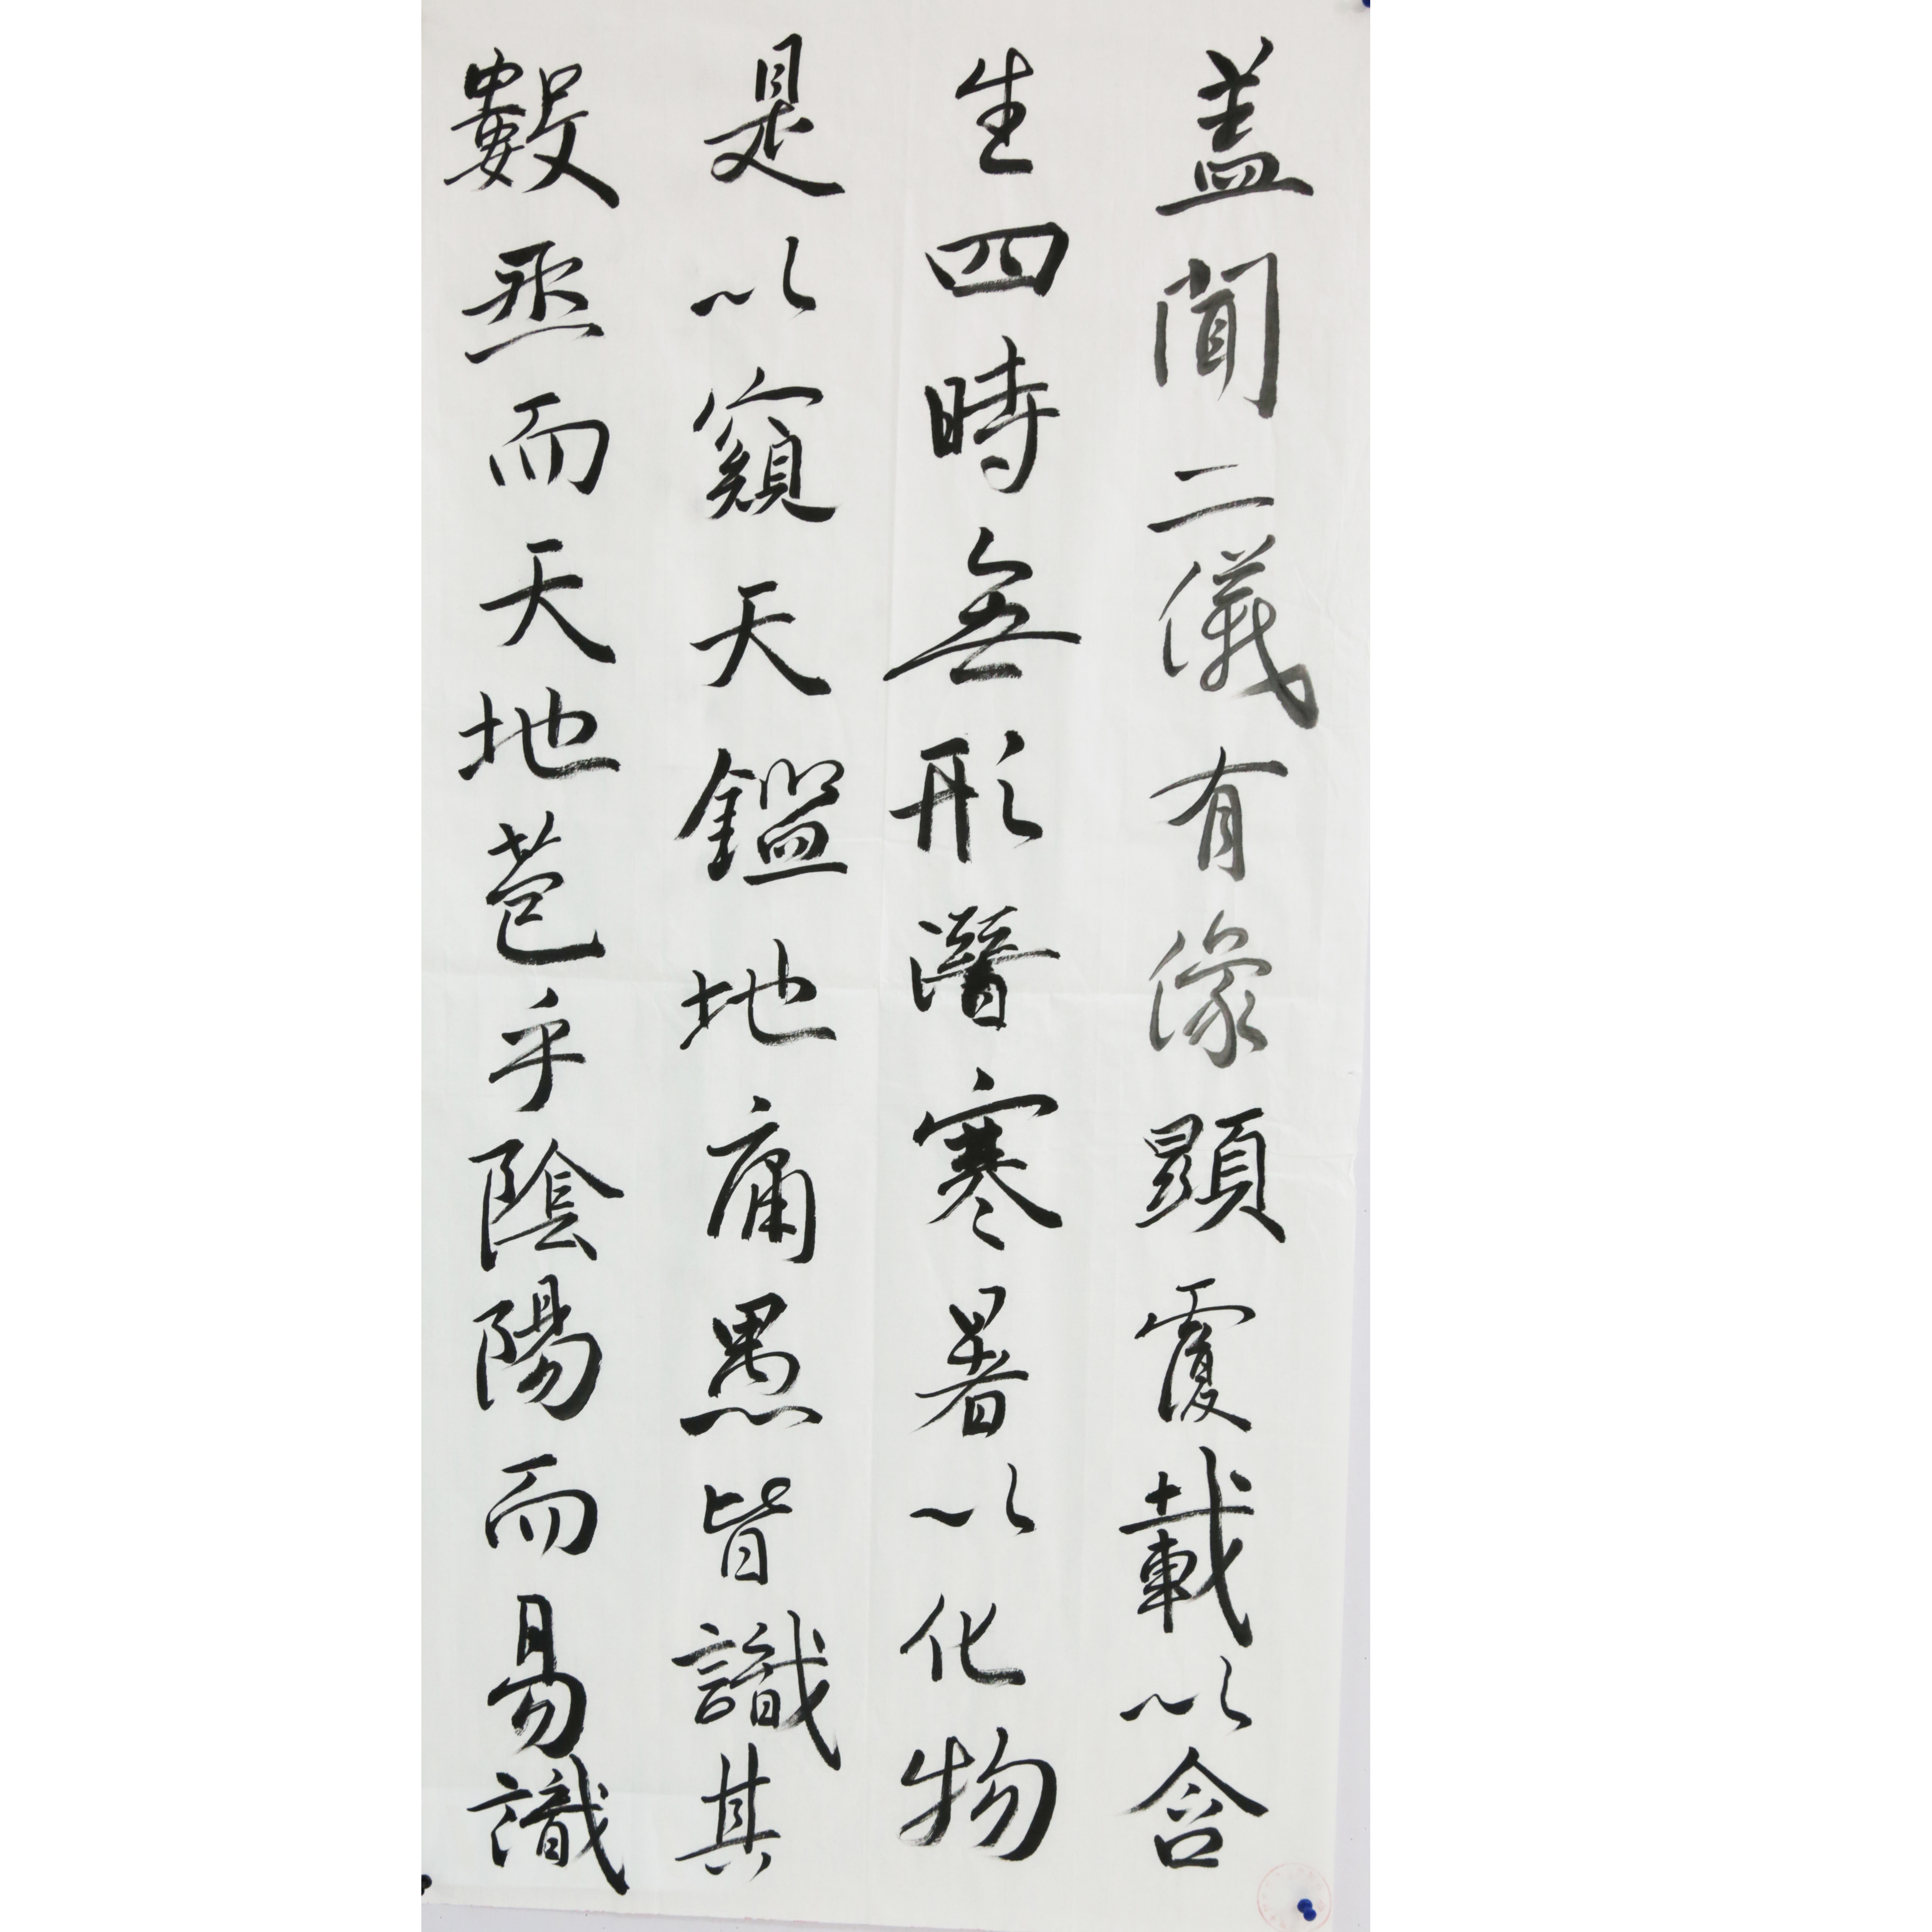 盖聞二儀有像顯覆載以含
生四時無形潛寒暑以化物
是以窺天鑑地庸愚皆識其
數烝而天地苞乎陰陽而易識